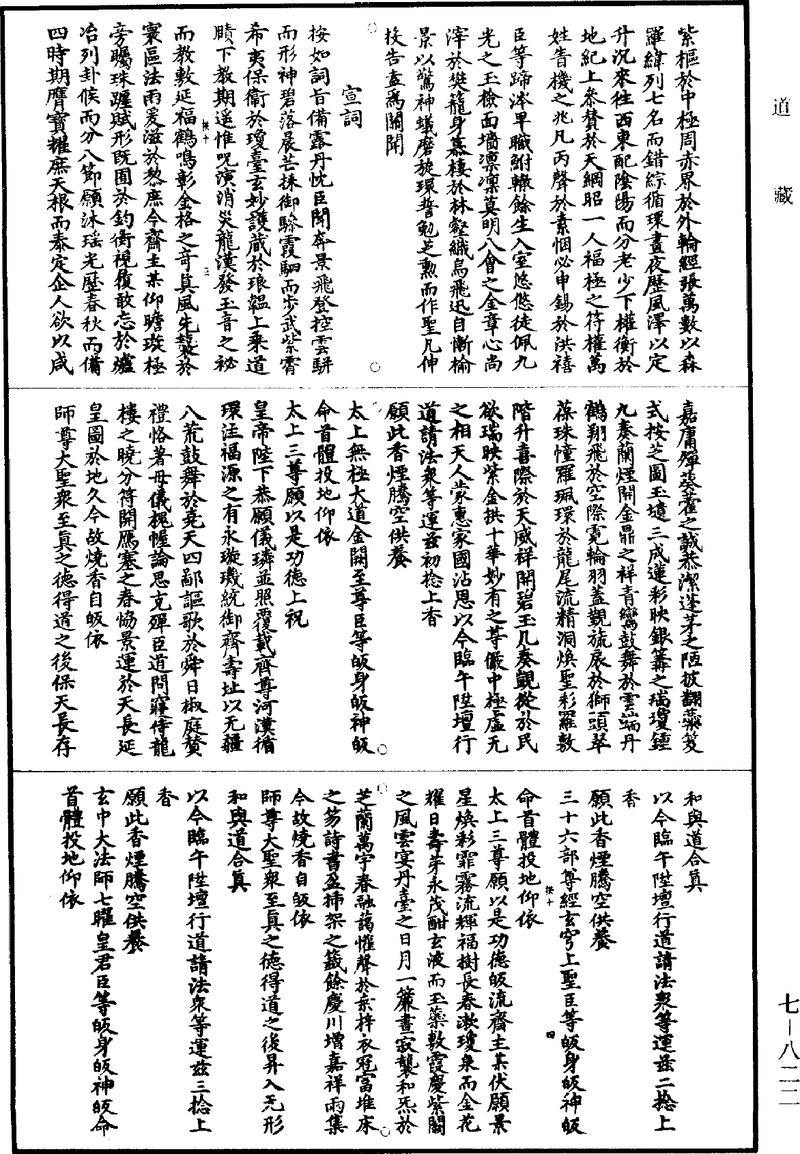 道藏
紫樞於中極周赤界於外輪經張萬數以森
羅緯列七名而錯綜循環晝夜歷風澤以定
升沉來往西東配陰陽而分老少下權衡於
地紀上叅賛於天綱昭一人福極之符權萬
姓眚機之兆凡丙聲於素悃必申錫於洪禧
臣等蹄涔早職鮒轍餘生入室悠悠徒佩九
光之玉檢面墻凛凛莫明八會之金章心尚
滓於樊籠身慕棲於林壑織烏飛迅自慚榆
景以驚神蟻磨旋環誓勉芝勲而作聖凡伸
校告盍爲關開
宣詞
按如詞旨備露丹忱臣聞奔景飛登控雲駢
而形神碧落晨芒抹御驂霞駟而步武紫霄
希夷保衛於瓊臺玄妙護藏於琅韞上乗道
賾下教期遥惟呪演消災龍漢發玉音之祕
而教敷延福鶴鳴彰金格之竒真風先襲於
寰區法雨爰滋於黎庶今齋主某仰瞻璇極
旁矚珠躔賦形既囿於鈞衡視履敢忘於爐
冶列卦候而分八節願沐瑶光歷春秋而備
四時期膺寳耀庶天根而泰定企人欲以咸
嘉庸殫葵藿之誠恭潔蓬茅之陋披翻蘂笈
式按芝圖玉壇三成蓮彩映銀籌之瑞瓊鍾
九奏蘭煙開金鼎之祥青鸞鼓舞於雲端丹
鶴翔飛於空際霓輪羽蓋覲旒扆於獅頭翠
葆珠幢羅珮環於龍尾流精洞煥聖彩羅敷
階升喜際於天威祥開碧玉几奏覬從於民
欲瑞映紫金拱十華妙有之尊儼中極虛无
之相天人蒙惠家國沾恩以今臨午陞壇行
道請法衆等運兹初捻上香
願此香煙騰空供養
太上無極大道金闕至尊臣等皈身皈神皈
命首體投地仰依
太上三尊願以是功德上祝
皇帝陛下恭願儀璘並照覆載齊尊河漢循
環注福源之有永璇璣統御齊壽址以无疆
八荒鼓舞於堯天四鄙謳歌於舜日椒庭賛
禮恪著母儀槐幄論思克殫臣道問寢侍龍
樓之曉分符開鴈塞之春協景運於天長延
皇圖於地久今故燒香自皈依
師尊大聖衆至真之德得道之後保天長存
和與道合真
以今臨午陞壇行道請法衆等運兹二捻上
香
願此香煙騰空供養
三十六部尊經玄穹上聖臣等皈身皈神皈
命首體投地仰依
太上三尊願以是功德皈流齋主某伏願景
星煥彩霏霧流輝福樹長春漱瓊泉而金花
耀日壽芽永茂酣玄液而玉蘂敷霞慶紫閣
之風雲宴丹臺之日月一簾晝寂襲和炁於
芝蘭萬宇春融藹懽聲於桑梓衣冠富堆床
之笏詩書盈挿架之籤餘慶川增嘉祥雨集
今故燒香自皈依
師尊大聖衆至真之德得道之後昇入无形
和與道合真
以今臨午陞壇行道請法衆等運兹三捻上
香
願此香煙騰空供養
玄中大法師七曜皇君臣等皈身皈神皈命
首體投地仰依
七—八二二